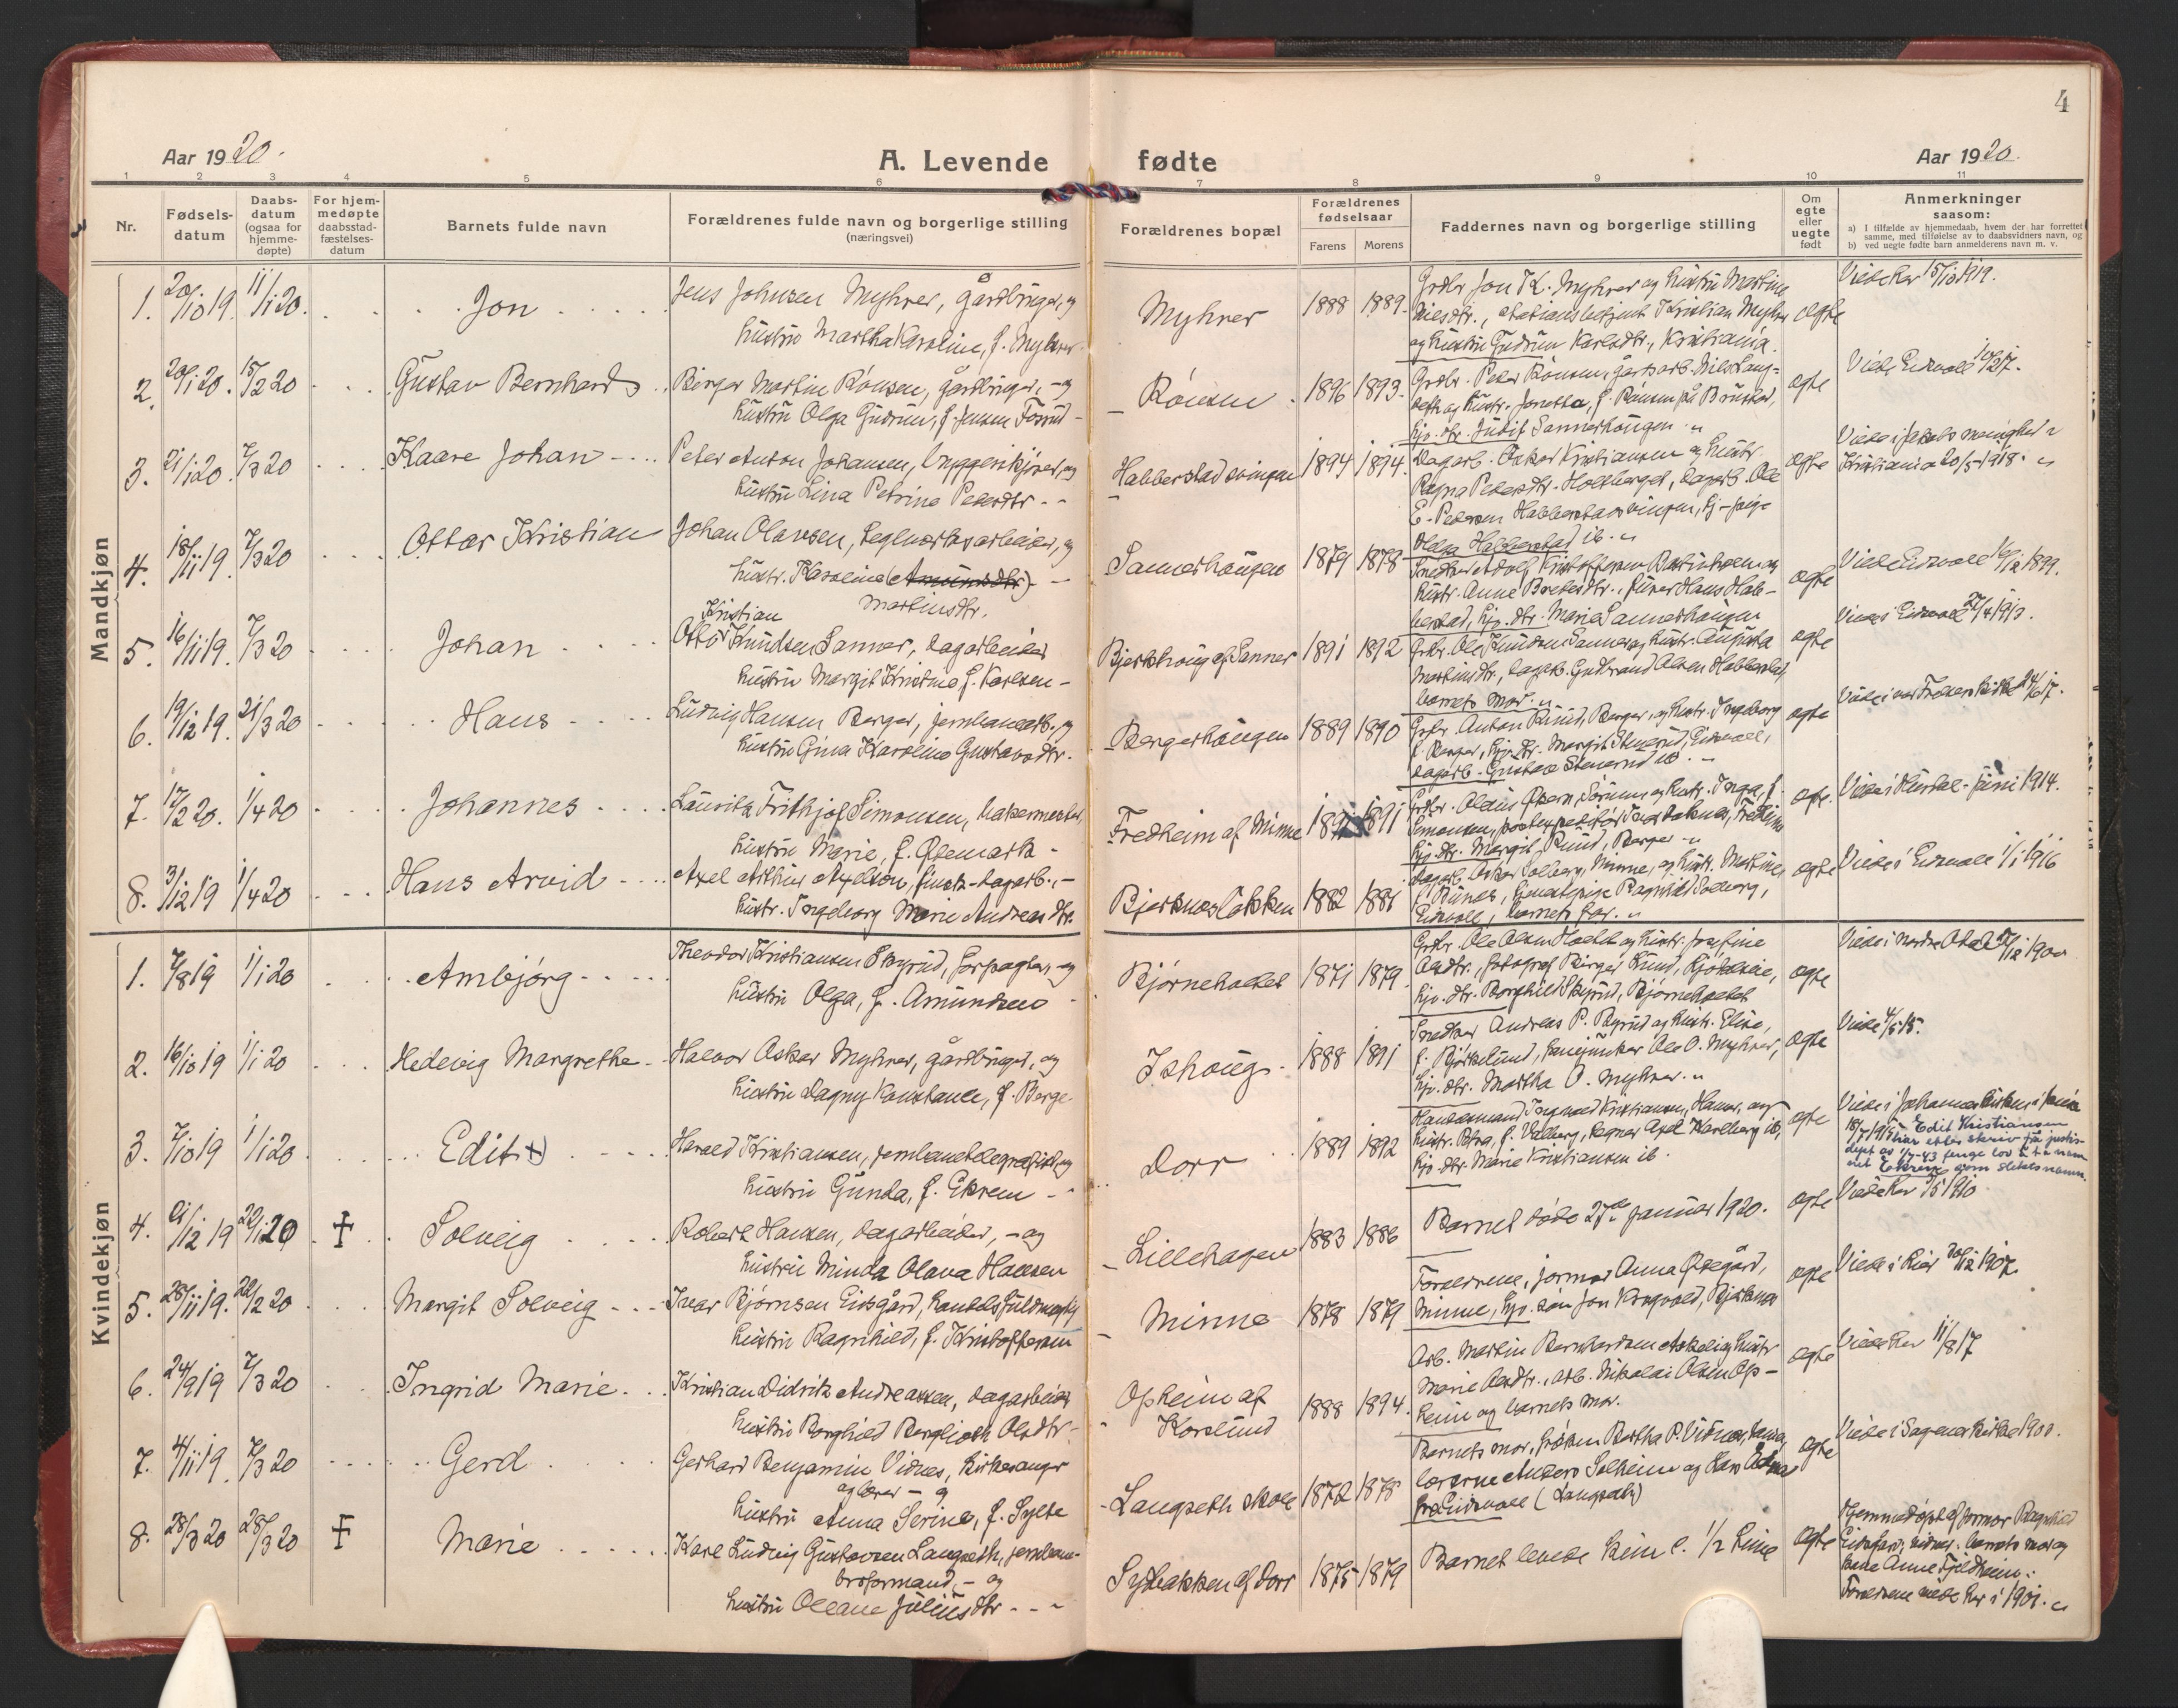 4
Aar 1920.
A. Levende fødte
Aar 1920.
1 2 3 4 5 6 7 8 9 10 11
Nr.
Fødsels-
datum
Daabs-
datum
(ogsaa for
hjemme-
døpte)
For hjem-
medøpte
daabsstad-
fæstelses-
datum
Barnets fulde navn
Forældrenes fulde navn og borgerlige stilling
(næringsvei)
Forældrenes bopæl
Forældrenes
fødselsaar
Farens
Morens
Faddernes navn og borgerlige stilling
Om
egte
eller
uegte
født
Anmerkninger
saasom:
a) I tilfælde av hjemmedaab, hvem der har forrettet
samme, med tilføielse av to daabsvidners navn, og
b) ved uegte fødte barn anmelderens navn m. v.
Mandkjøn
1. 20/10 19. 11/1 20. Jon
Jens Johnsen Myhrer, gårdbruger, og
hustru Martha Karoline, f. Myhrer.
Myhrer 1888 1889.
Grdbr. Jon K. Myhrer og hustru Martine
Nilsdtr., stationsbetjent Kristian Myhrer
og hustru Gudrun Karlsdtr., Kristiania.
egte
Viede her 15/10 1919.
2. 20/1 20. 15/2 20 Gustav Bernhard
Birger Martin Rónsen, gårdbruger, - og
hustru Olga Gudrun, f. Jensen
Rónsen 1896 1893.
Grdbr. Peter Rónsen, gårdsarb. Nils Lang-
seth og hustr. Jonetta, f. Rónsen på
hjv. dtr. Sannerhaugen
egte
Viede Eidsvoll 10/2 17.
3. 21/1 20. 7/3 20 Kaare Johan
Peter Anton Johansen, bryggerikjører, og
hustru Lina Petrine Pedersdtr.
Habberstadsvingen 1894 1894.
Dagarb. Oskar Kristiansen og hustr.
Ragna Pedersdtr. Holtberget, dagarb. Ole
E. Pedersen Habberstadsvingen, tj.-pige
Olga Habberstad ib.
egte
Viede i Jakobs menighet i
Kristiania 20/5-1918.
4. 18/11 19. 7/3 20 Ottar Kristian
Johan Olavsen, teglverksarbeider, og
hustr. Karoline (Amundsdtr.)
Martinsdtr.
Sannerhaugen 1879 1878
Snedker Adolf Kristoffersen og
hustr. Anne, Hans Hab-
berstad, hjv. dtr. Marie Sannerhaugen
egte
Viede Eidsvoll 16/12 1899.
5. 16/11 19. 7/3 20 Johan
Kristian
Otto Knudsen Sanner, dagarbeider
hustru Margit Kristine f. Karlsen
Bjerkhaug af Sanner 1891 1892
Grdbr. Ole Knudsen Sanner og hustr. Augusta
Martinsdtr., dagarb. Gudbrand Olsen Habberstad,
barnets mor.
egte
Viede i Eidsvoll 27/4 1913.
6. 19/12 19. 21/3 20 Hans
Ludvig Hansen Berger, jernbanearb., og
hustru Gina Karoline Gustavsdtr.
Bergerhaugen 1889 1890
Grdbr. Anton Ruud, Berger, og hustr. Ingeborg
f. Berger, hjv. dtr. Margit Stensrud, Eidsvoll,
dagarb. Gustav Stensrud ib.
egte
Viede i vor Frelsers kirke 24/6 17.
7. 17/2 20. 1/4 20 Johannes
Lauritz Frithjof Simonsen, bakermester,
hustru Marie, f. Østmark
Fredheim af Minne 1891
hustr. Inga, f.
Simonsen, postexpeditør
hjv. dtr. Margit Ruud, Berger
egte.
Viede i Hurdal - juni 1914.
8. 3/12 19 1/4 20 Hans Arvid
Axel Arthur Axelson, dagarb.,
hustr. Ingeborg Marie Andreasdtr.
Bjerknesløkken 1882 1881
Dagarb. Oskar Solberg, Minne, og hustr. Martine,
f. Runes, tjenestepige Ragnhild Solberg,
Eidsvoll, barnets far.
egte
Viede i Eidsvoll 1/1 1916
Kvindekjøn
1. 7/8 19 1/1 20 Ambjørg
Theodor Kristiansen Skyrud, forpagter, og
hustru Olga, f. Amundsen
Bjørneholdet 1871 1879.
Grdbr. Ole Olsen Holdet og hustr. Josefine
Olsdtr., fotograf Birger Ruud,
hjv. dtr. Borghild Skyrud, Bjørneholdet
egte
Viede i nordre Odal 27/12 1900
2. 16/10 19 1/1 20 Hedevig Margrethe
Halvor Oskar Myhrer, gårdbruger, og
hustru Dagny Konstance, f. Berge
Ishaug. 1888 1891
Snedker Andreas P. Byrud og hustr. Elise,
f. Bjørkelund, Ole O. Myhrer,
hjv. dtr. Martha O. Myhrer.
egte
Viede 4/5 15.
3. 7/10 19 1/1 20 Edit x)
Harald Kristiansen, jernbanetelegrafist, og
hustru Gunda, f. Ekrem
Dorr 1889 1892
Handelsmand Ingvald Kristiansen, Hamar, og
hustr. Petra, f. Valberg, tegner Axel Karlberg ib,
hjv. dtr. Marie Kristiansen ib.
egte
Viede i Johannes kirken i
18/7 1915. Edit Kristiansen
har etter skriv fra justis-
dept av 1/9-43 fenge lov å ta navn-
et Ekrem som slektsnamn.
4. 21/12 19 22/1 20 † Solveig
Robert Hansen, dagarbeider, - og
hustru Minda Olava Hansen
Lillehagen 1883 1886
Barnet døde 27de januar 1920.
egte
Viede her 1910
5. 28/11 19. 22/2 20 Margit Solveig
Ivar Bjørnsen Eidsgård, handelsfuldmegtig
hustru Ragnhild, f. Kristoffersen
Minne 1878 1879
Forældrene, jormor Anna Ødegård,
Minne, hjv. søn Jon Krogvold, Bjerknes
egte
Viede i Lier 30/12 1907.
6. 24/9 19 7/3 20 Ingrid Marie
Kristian Didrik Andreassen, dagarbeider
hustru Borghild Bergliot Olsdtr.
Opheim af
Korslund 1888 1894.
Arb. Martin Bernhardsen og hustr.
Marie Olsdtr., arb. Nikolai Olsen Op-
heim og barnets mor.
egte
Viede her 11/8 17
7. 4/11 19. 7/3 20 Gerd
Gerhard Benjamin Vidnes, kirkesanger
og lærer - og
hustru Anna Serine, f. Sylte
Langseth skole 1872 1878
Barnets mor, frøken Bertha P. Vidnes,
lærerne Anders Solheim og
fra Eidsvoll (Langseth)
egte
Viede i Sagene kirke 1900.
8. 28/3 20 28/3 20 † Marie
Karl Ludvig Gustavsen Langseth, jernbane-
broformand, - og
hustru Oleane Juliusdtr.
Sybakken af Dorr 1875 1879
Barnet levede kun c. 1/2 time
egte
Hjemmedøpt af jormor Ragnhild
Eidsgård; vidner: barnets mor og
Anne Fjeldheim.
Forældrene viede her i 1901.